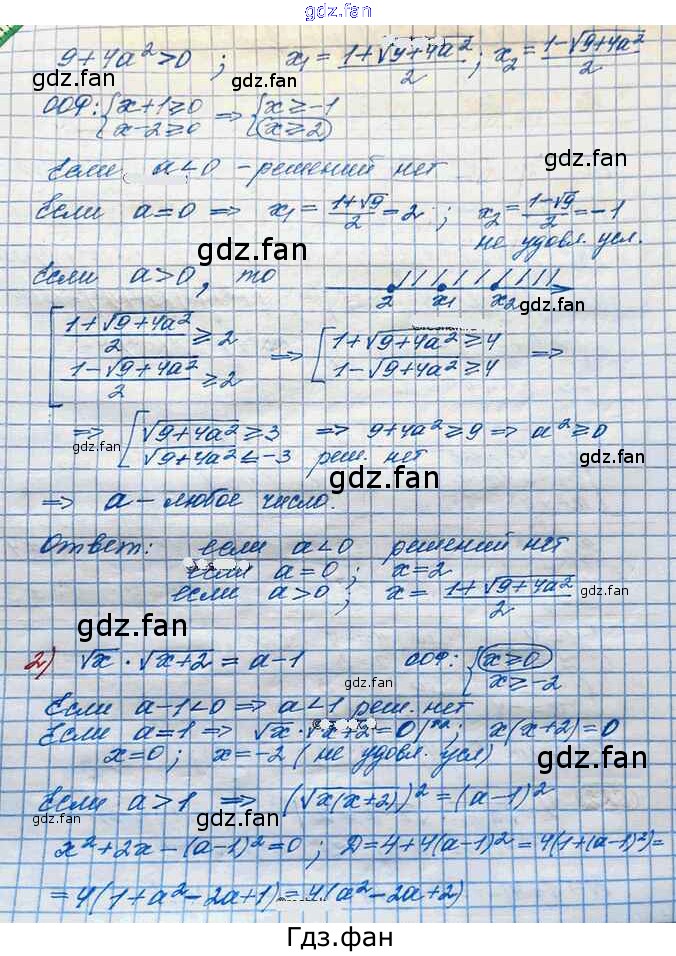 gdz.fan
9+4a²>0 ; x₁ = (1+√(9+4a²))/2 ; x₂ = (1-√(9+4a²))/2
gdz.fan gdz.fan
ООФ: { x+1≥0 x-2≥0 => { x≥-1 x≥2
gdz.fan
Если a<0 - решений нет
Если a=0 => x₁ = (1+√9)/2 = 2 ; x₂ = (1-√9)/2 = -1
не удовл. усл.
gdz.fan
Если a>0, то 2 x₁ x₂
gdz.fan
[ (1+√(9+4a²))/2 ≥ 2 => [ 1+√(9+4a²) ≥ 4 =>
(1-√(9+4a²))/2 ≥ 2 1-√(9+4a²) ≥ 4
gdz.fan
=> [ √(9+4a²) ≥ 3 => 9+4a² ≥ 9 => a² ≥ 0
√(9+4a²) ≤ -3 реш. нет
gdz.fan gdz.fan gdz.fan
=> a - любое число.
Ответ: если a<0 решений нет
если a=0 ; x=2
если a>0 ; x = (1+√(9+4a²))/2
gdz.fan gdz.fan
2) √x · √x+2 = a-1 ООФ: { x≥0 x≥-2
gdz.fan
Если a-1<0 => a<1 реш. нет
Если a=1 => √x · √x+2 = 0 ; x(x+2)=0
x=0 ; x=-2 ( не удовл. усл)
gdz.fan gdz.fan
Если a>1 => (√x(x+2))² = (a-1)²
gdz.fan
x²+2x-(a-1)²=0 ; D=4+4(a-1)² = 4(1+(a-1)²)=
gdz.fan
= 4(1+a²-2a+1) = 4(a²-2a+2)
Гдз.фан